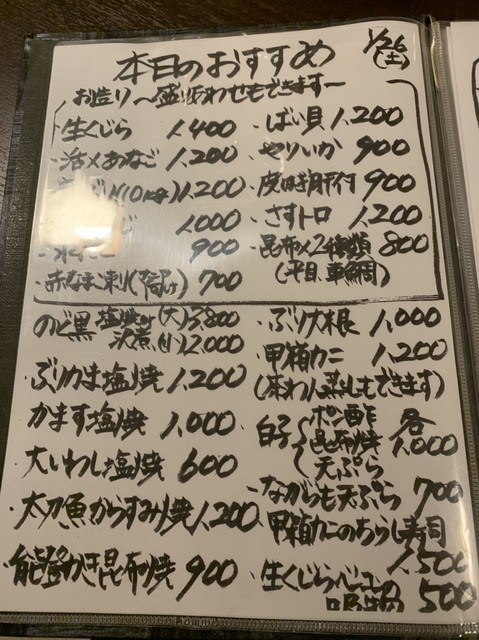 本日のおすすめ
1/26(土)
お造り 〜盛り合わせもできます〜
生くじら 1,400
活〆あなご 1,200
(10kg) 1,200
1,000
900
赤なまこ刺し 700
・ばい貝 1,200
・やりいか 900
・皮はぎ肝付 900
・さすトロ 1,200
・昆布〆2種類 800
(平目、車鯛)
のど黒 塩焼き (大) 3,800
沢煮 (小) 2,000
・ぶりかま塩焼 1,200
・かます塩焼 1,000
・大いわし塩焼 600
・太刀魚からすみ焼 1,200
・能登かき昆布焼 900
・ぶり大根 1,000
・甲箱カニ 1,200
(茶わん蒸しもできます)
・白子 ポン酢 各
昆布焼 1,000
天ぷら
・ながらも天ぷら 700
・甲箱カニのちらし寿司
1,500
・生くじらベーコン
500